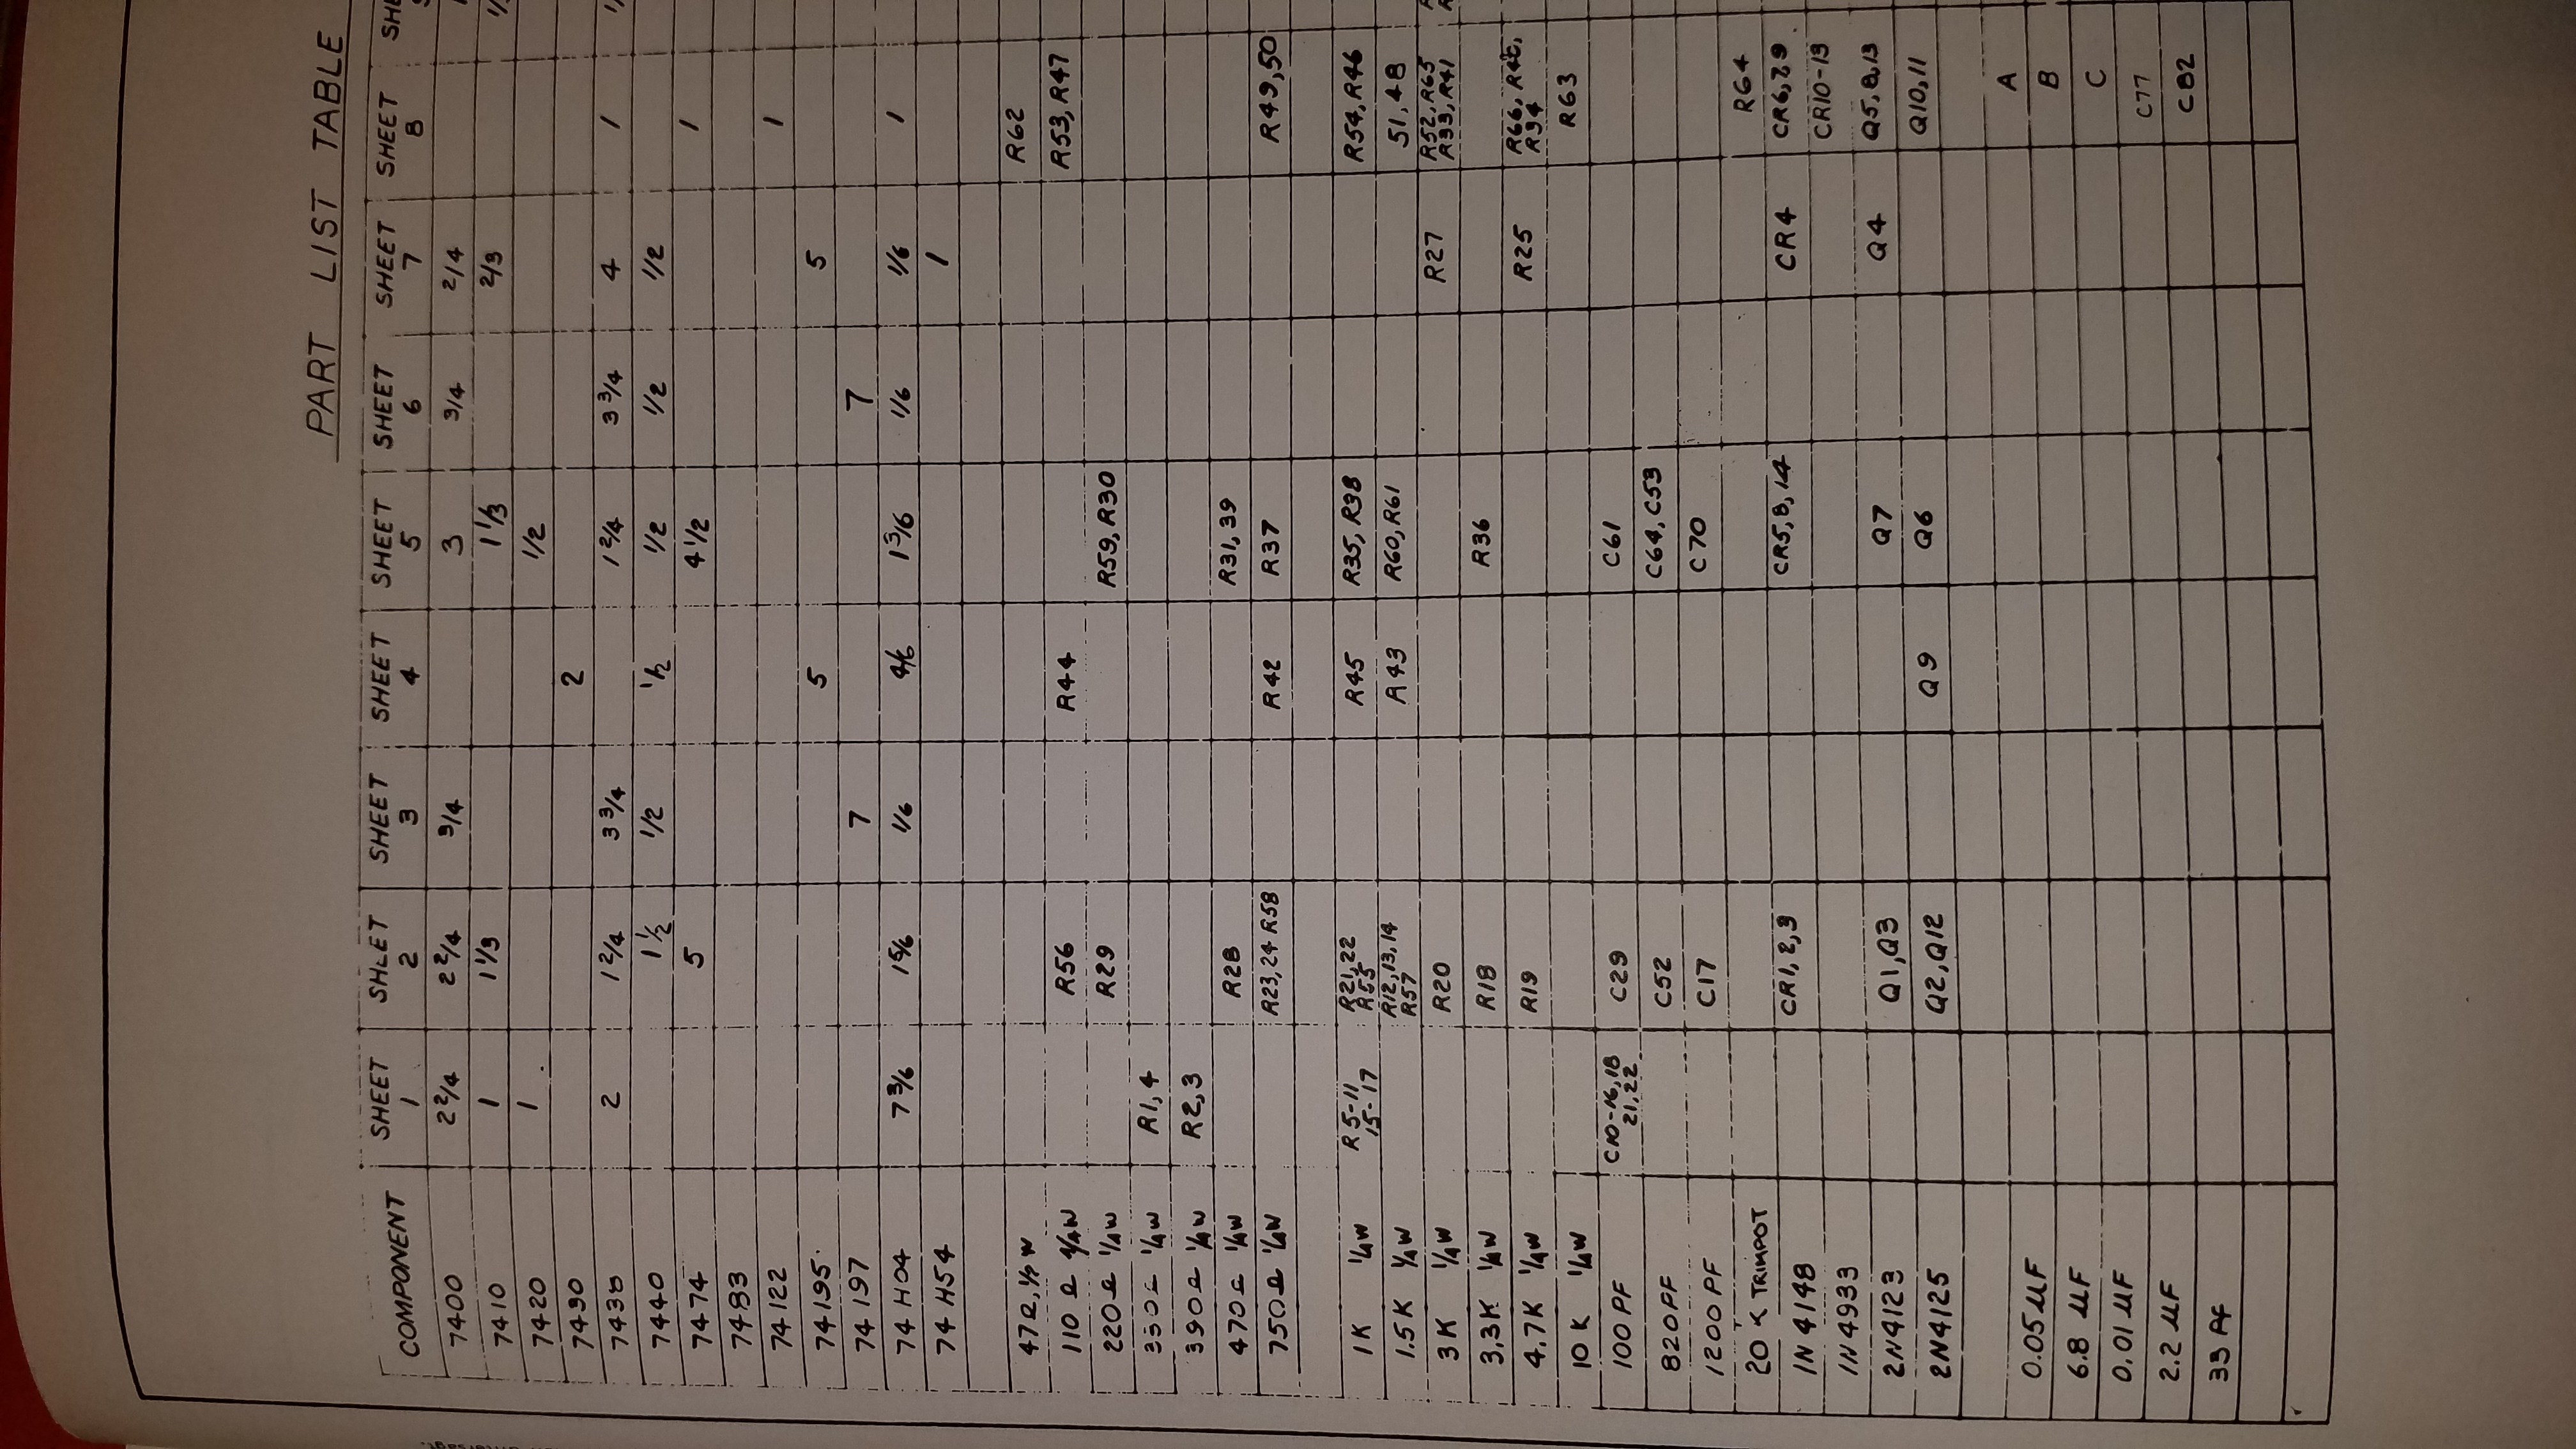 PART LIST TABLE
COMPONENT SHEET 1 SHEET 2 SHEET 3 SHEET 4 SHEET 5 SHEET 6 SHEET 7 SHEET 8
7400 2 2/4 2 2/4 3/4 3 3/4 2/4
7410 1 1 1/3 1 1/3 2/3
7420 1 1/2
7430 2
7438 2 1 2/4 3 3/4 1 2/4 3 3/4 4 1
7440 1 1/2 1/2 1/2 1/2 1/2 1/2
7474 5 4 1/2 1
7483
74122 1
74195 5 5
74197 7 7
74H04 7 3/6 1 5/6 1/6 4/6 1 3/6 1/6 1/6 1
74H54 1
47Ω, 1/2 W R62
110 Ω 1/4W R56 R44 R53, R47
220Ω 1/4W R29 R59, R30
330Ω 1/4W R1, 4
390Ω 1/4W R2, 3
470Ω 1/4W R28 R31, 39
750Ω 1/4W R23, 24 R58 R42 R37 R49, 50
1K 1/4W R5-11 15-17 R21, 22 R55 R45 R35, R38 R54, R46
1.5K 1/4W R12, 13, 14 R57 R43 R60, R61 51, 48
3K 1/4W R20 R27 R52, R65 R33, R41
3,3K 1/4W R18 R36
4.7K 1/4W R19 R25 R66, R34
10 K 1/4W R63
100 PF C10-16, 18 21, 22 C29 C61
820PF C52 C64, C53
1200 PF C17 C70
20 K TRIMPOT R64
1N 4148 CR1, 2, 3 CR5, 8, 14 CR4 CR6, 7, 9
1N4933 CR10-13
2N4123 Q1, Q3 Q7 Q4 Q5, 8, 13
2N4125 Q2, Q12 Q9 Q6 Q10, 11
0.05 µF A
6.8 µF B
0.01 µF C
2.2 µF C77
33 Pf C82